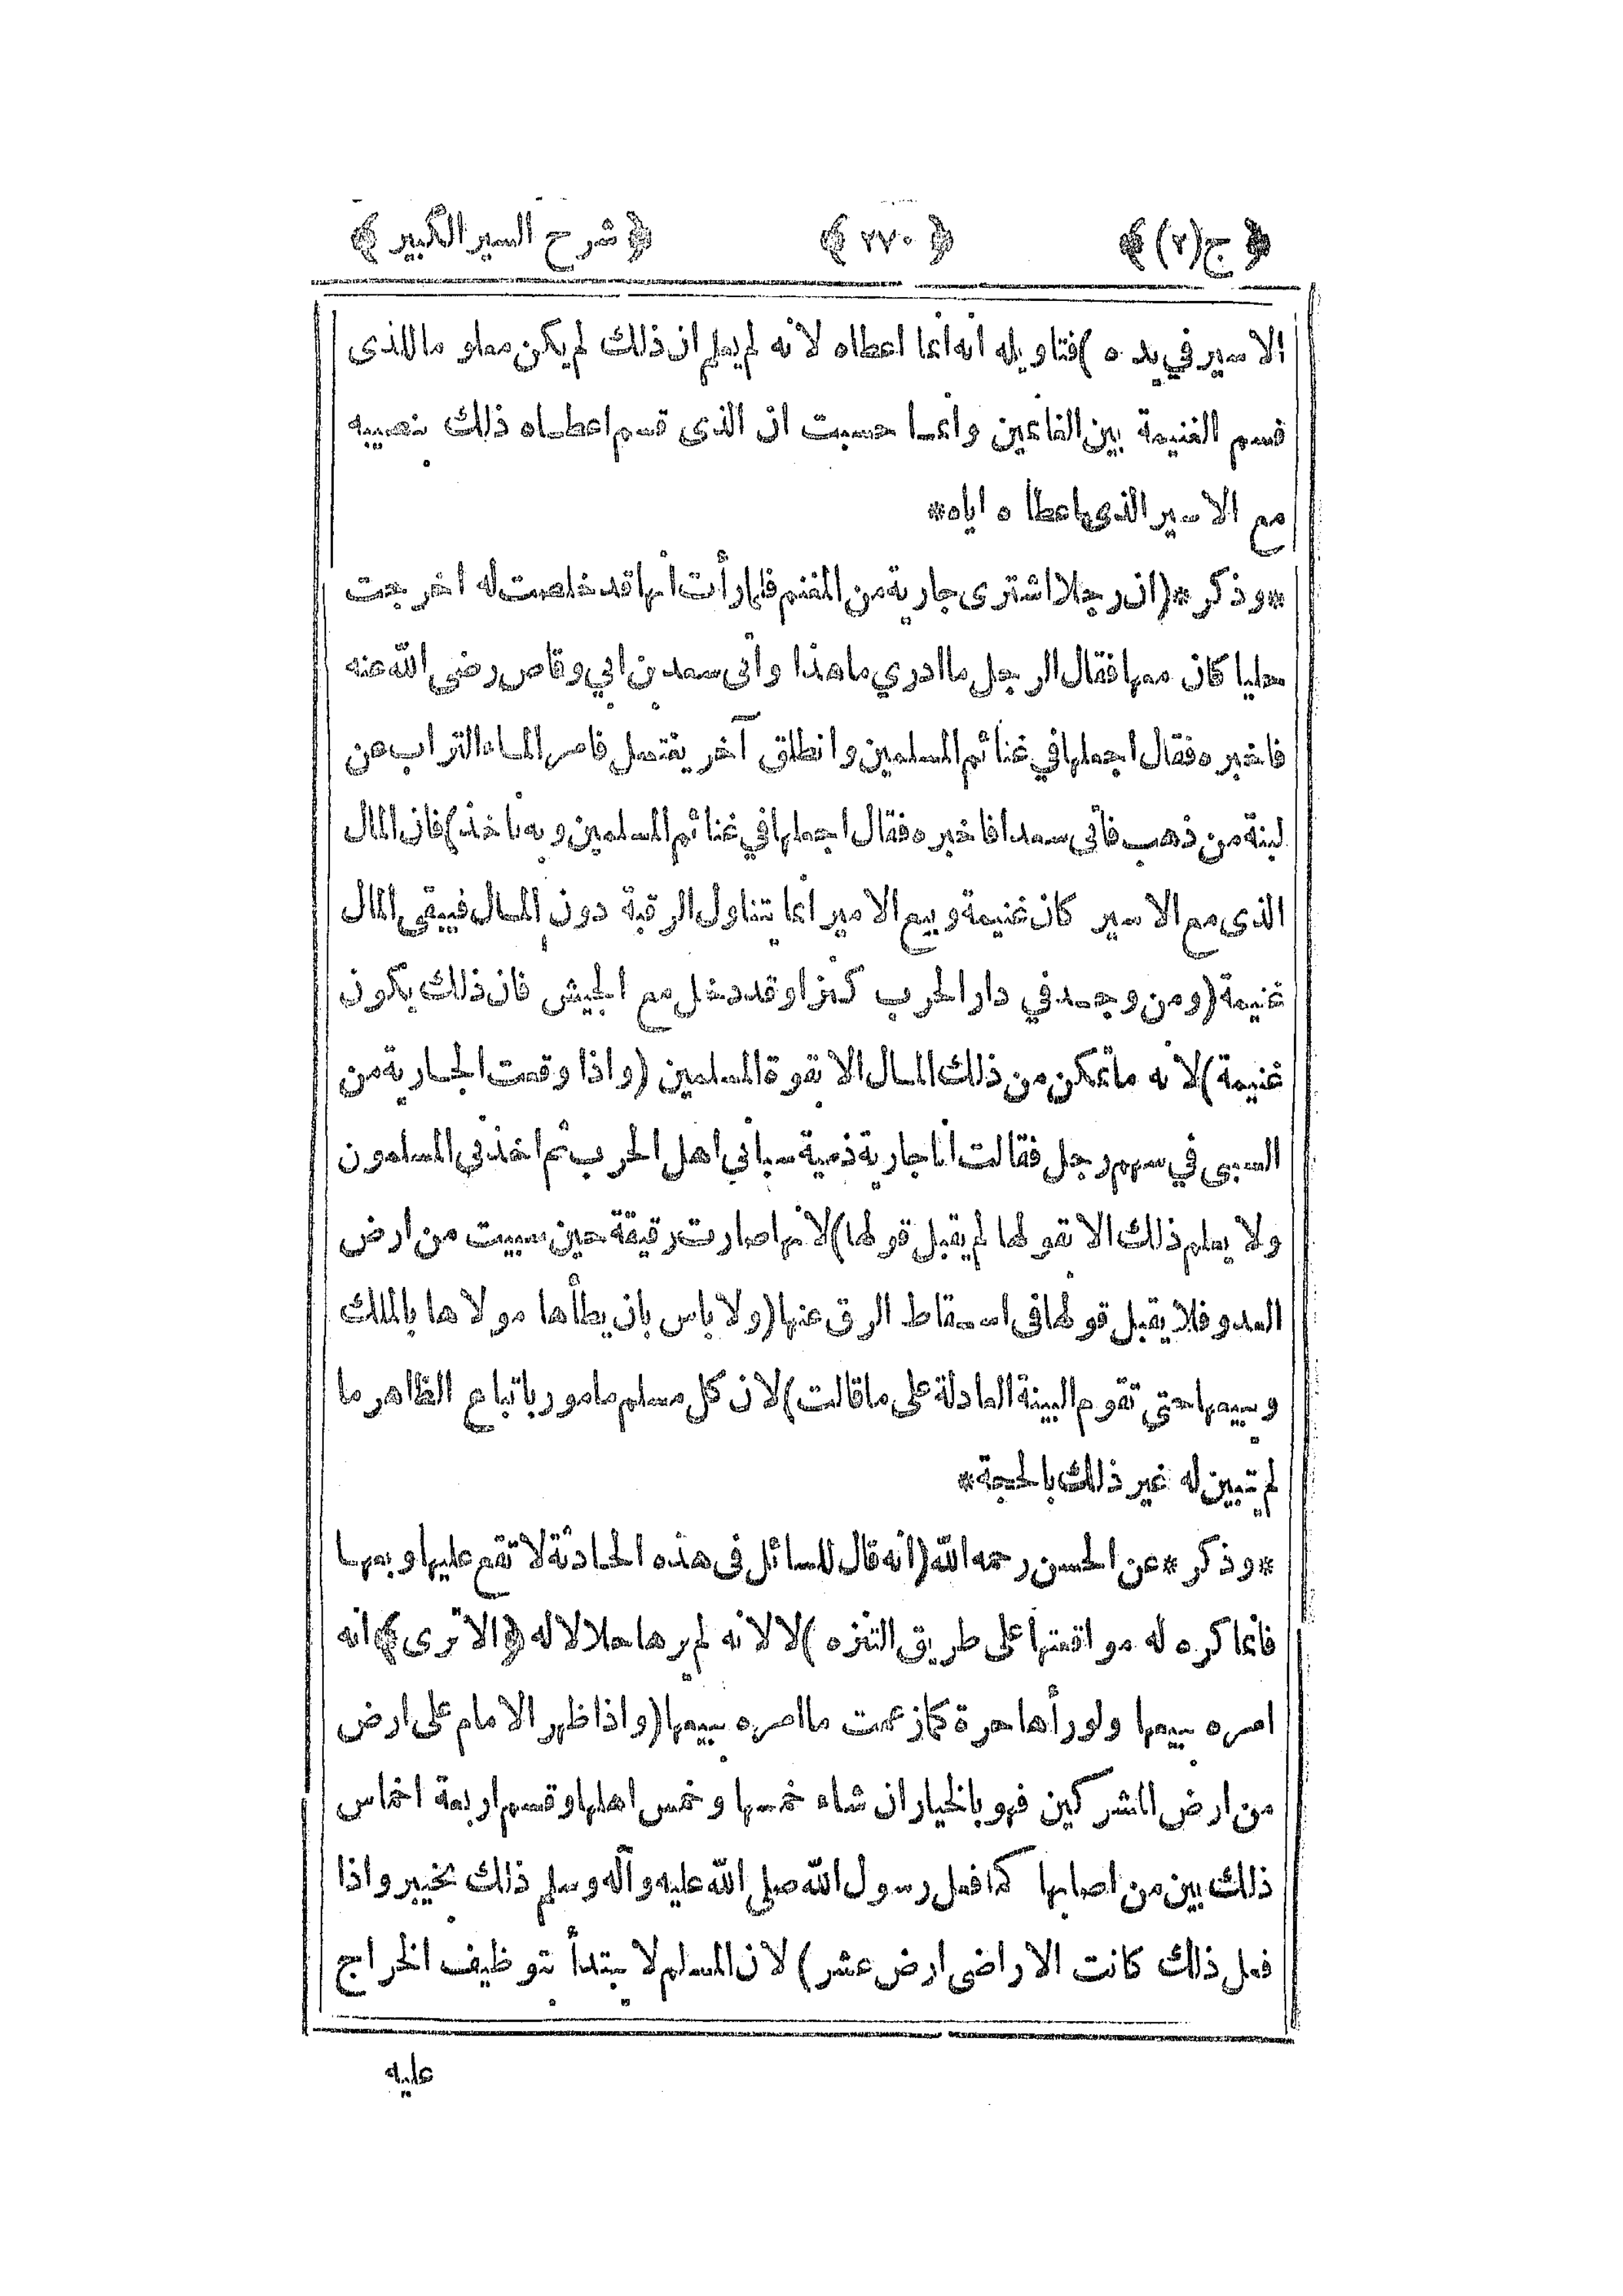 ﴿ ج(٢) ﴾ ﴿ ٢٧٠ ﴾ ﴿ شرح السير الكبير ﴾
الاسير في يده ) فتاويله انه انما اعطاه لانه لم يعلم ان ذلك لم يكن معلو ما للذى
قسم الغنيمة بين الغانمين وانما حسبت ان الذى قسم اعطاه ذلك بنصيبه
مع الاسير الذى اعطاه اياه*
*وذكر*(ان رجلا اشترى جارية من المغنم فلما رأت انها قد خلصت له اخرجت
حليا كان معها فقال الرجل ما ادري ما هذا وأتى سعد بن ابي وقاص رضى الله عنه
فاخبره فقال اجعلها في غنائم المسلمين وانطلق آخر يغتسل فامر الماء التراب عن
لبنة من ذهب فأتى سعدا فاخبره فقال اجعلها في غنائم المسلمين وبه ناخذ)فان المال
الذى مع الاسير كان غنيمة وبيع الامير انما يتناول الرقبة دون المال فيبقى المال
غنيمة(ومن وجد في دار الحرب كنزا وقد دخل مع الجيش فان ذلك يكون
غنيمة)لانه ما تمكن من ذلك المال الا بقوة المسلمين (واذا وقعت الجارية من
السبى في سهم رجل فقالت انا جارية ذمية سبانى اهل الحرب ثم اخذنى المسلمون
ولا يعلم ذلك الا بقولها لم يقبل قولها)لانها صارت رقيقة حين سبيت من ارض
العدو فلا يقبل قولها فى اسقاط الرق عنها(ولا باس بان يطأها مولاها بالملك
وبيعها حتى تقوم البينة العادلة على ما قالت)لان كل مسلم مامور باتباع الظاهر ما
لم يتبين له غير ذلك بالحجة*
*وذكر*عن الحسن رحمه الله(انه قال للسائل فى هذه الحادثة لا تقع عليها وبعها
فانما كره له مواقعتها على طريق التنزه)لا لانه لم يرها حلالا له ﴿الا ترى﴾ انه
امره ببيعها ولو رأها حرة كما زعمت ما امره ببيعها(واذا ظهر الامام على ارض
من ارض المشركين فهو بالخيار ان شاء خمسها وخمس اهلها وقسم اربعة اخماس
ذلك بين من اصابها كما فعل رسول الله صلى الله عليه وآله وسلم ذلك بخيبر واذا
فعل ذلك كانت الاراضى ارض عشر) لان المسلم لا يبتدأ بتوظيف الخراج
عليه